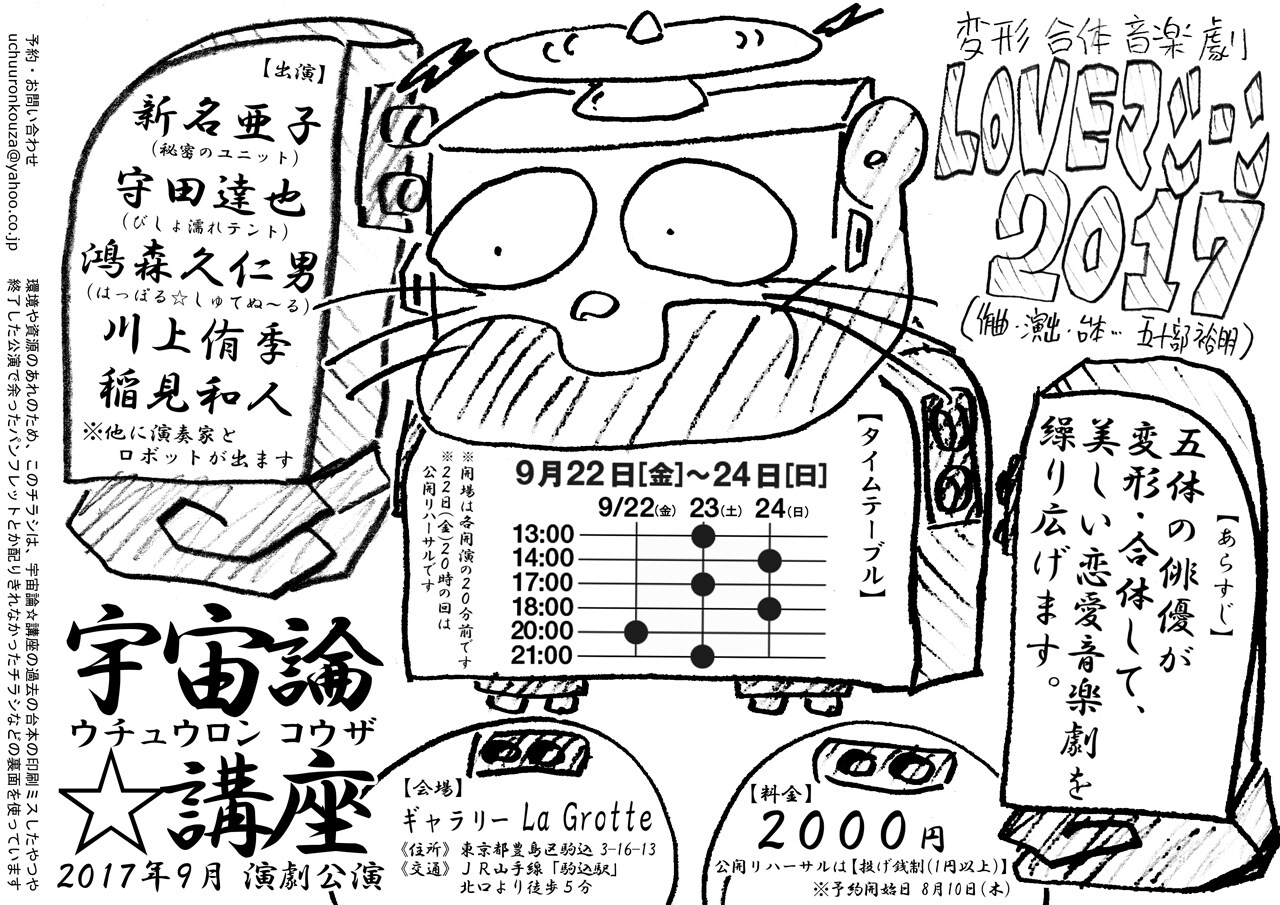 変形 合体 音楽 劇
LOVEマシーン
2017
(作曲・演出・台本… 五十部裕明)
【出演】
新名亜子
(秘密のユニット)
守田達也
(びしょ濡れテント)
鴻森久仁男
(はっぽる☆しゅてぬ〜る)
川上侑季
稲見和人
※他に演奏家と
ロボットが出ます
【タイムテーブル】
9月22日[金]〜24日[日]
9/22(金) 23(土) 24(日)
13:00
14:00
17:00
18:00
20:00
21:00
※開場は各開演の20分前です
※22日(金)20時の回は
公開リハーサルです
【あらすじ】
五体の俳優が
変形・合体して、
美しい恋愛音楽劇を
繰り広げます。
宇宙論
ウチュウロン コウザ
☆講座
2017年9月 演劇公演
【会場】
ギャラリー La Grotte
《住所》 東京都豊島区駒込 3-16-13
《交通》 JR山手線「駒込駅」
北口より徒歩5分
【料金】
2000円
公開リハーサルは【投げ銭制(1円以上)】
※予約開始日 8月10日(木)
予約・お問い合わせ
uchuuronkouza@yahoo.co.jp
環境や資源のあれのため、このチラシは、宇宙論☆講座の過去の台本の印刷ミスしたやつや
終了した公演で余ったパンフレットとか配りきれなかったチラシなどの裏面を使っています